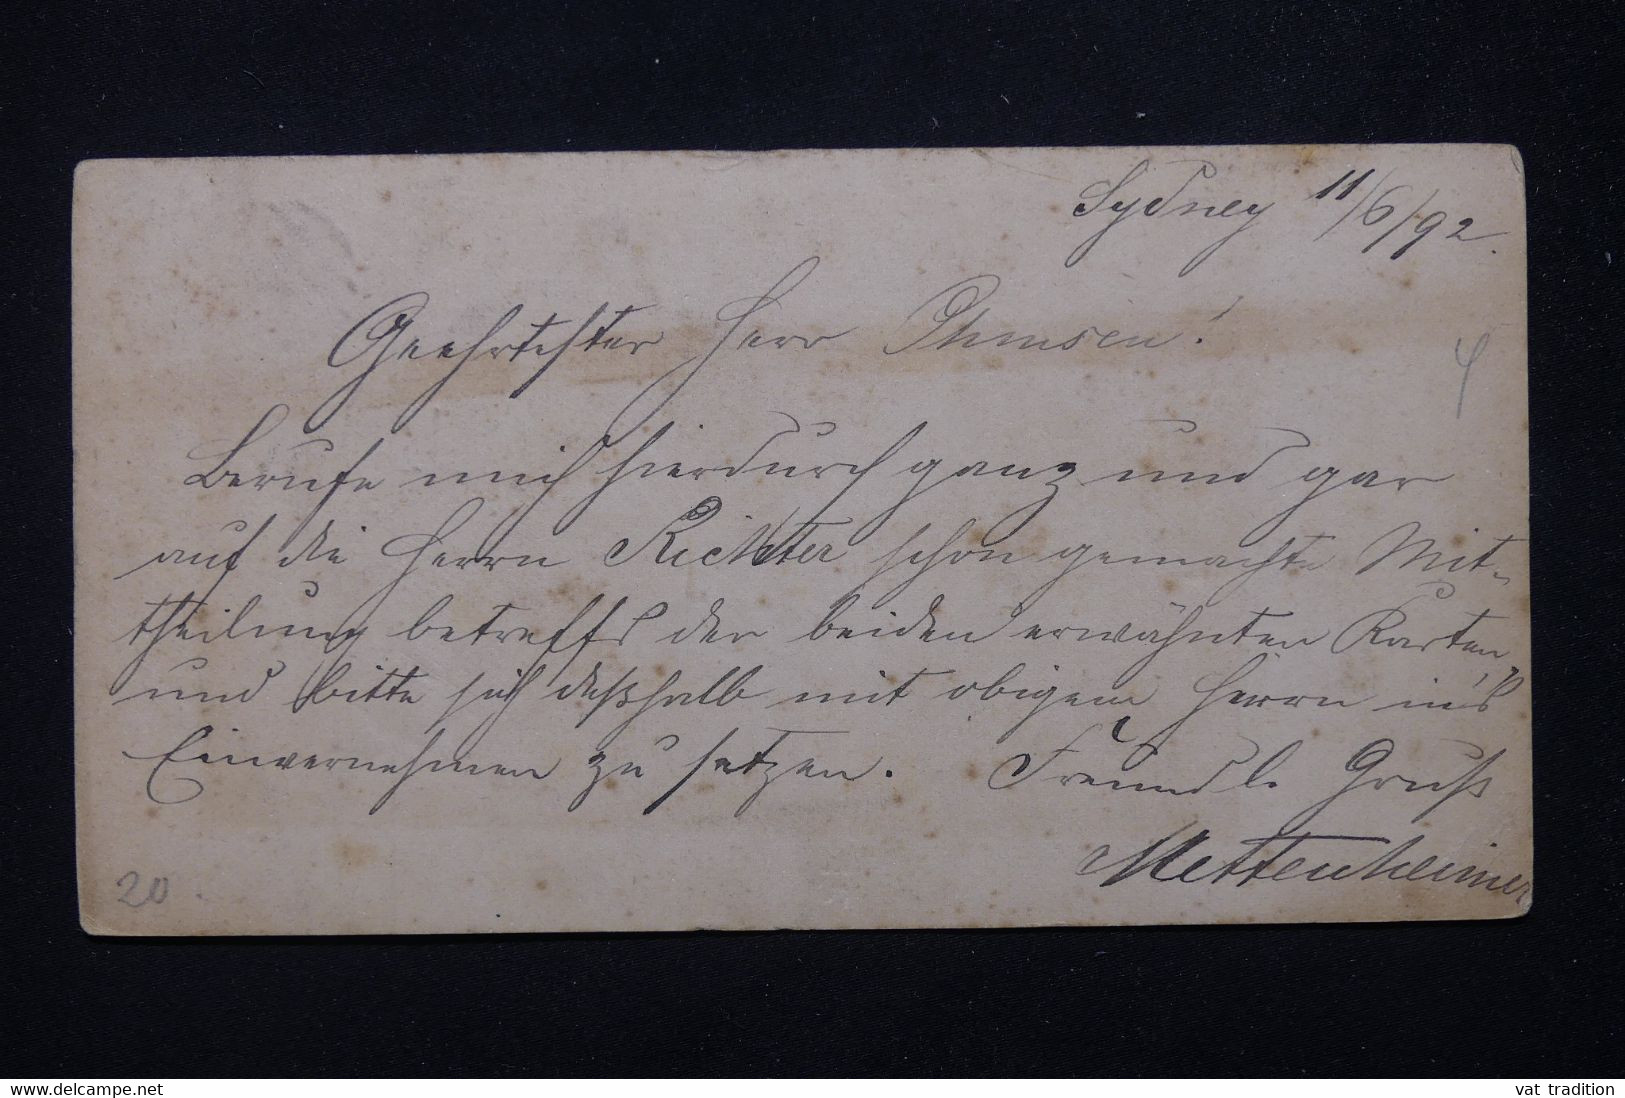 Sydney 11/6/92.
Geehrtester Herr Ohmsen!
Berufe mich hierdurch ganz und gar
auf die Herrn Richter schon gemachte Mit-
theilung betreffs der beiden erwähnten Karten,
und bitte sich deßhalb mit obigem Herrn in's
Einvernehmen zu setzen. Freundl. Gruß
Mettenheimer
20
www.delcampe.net
vat tradition